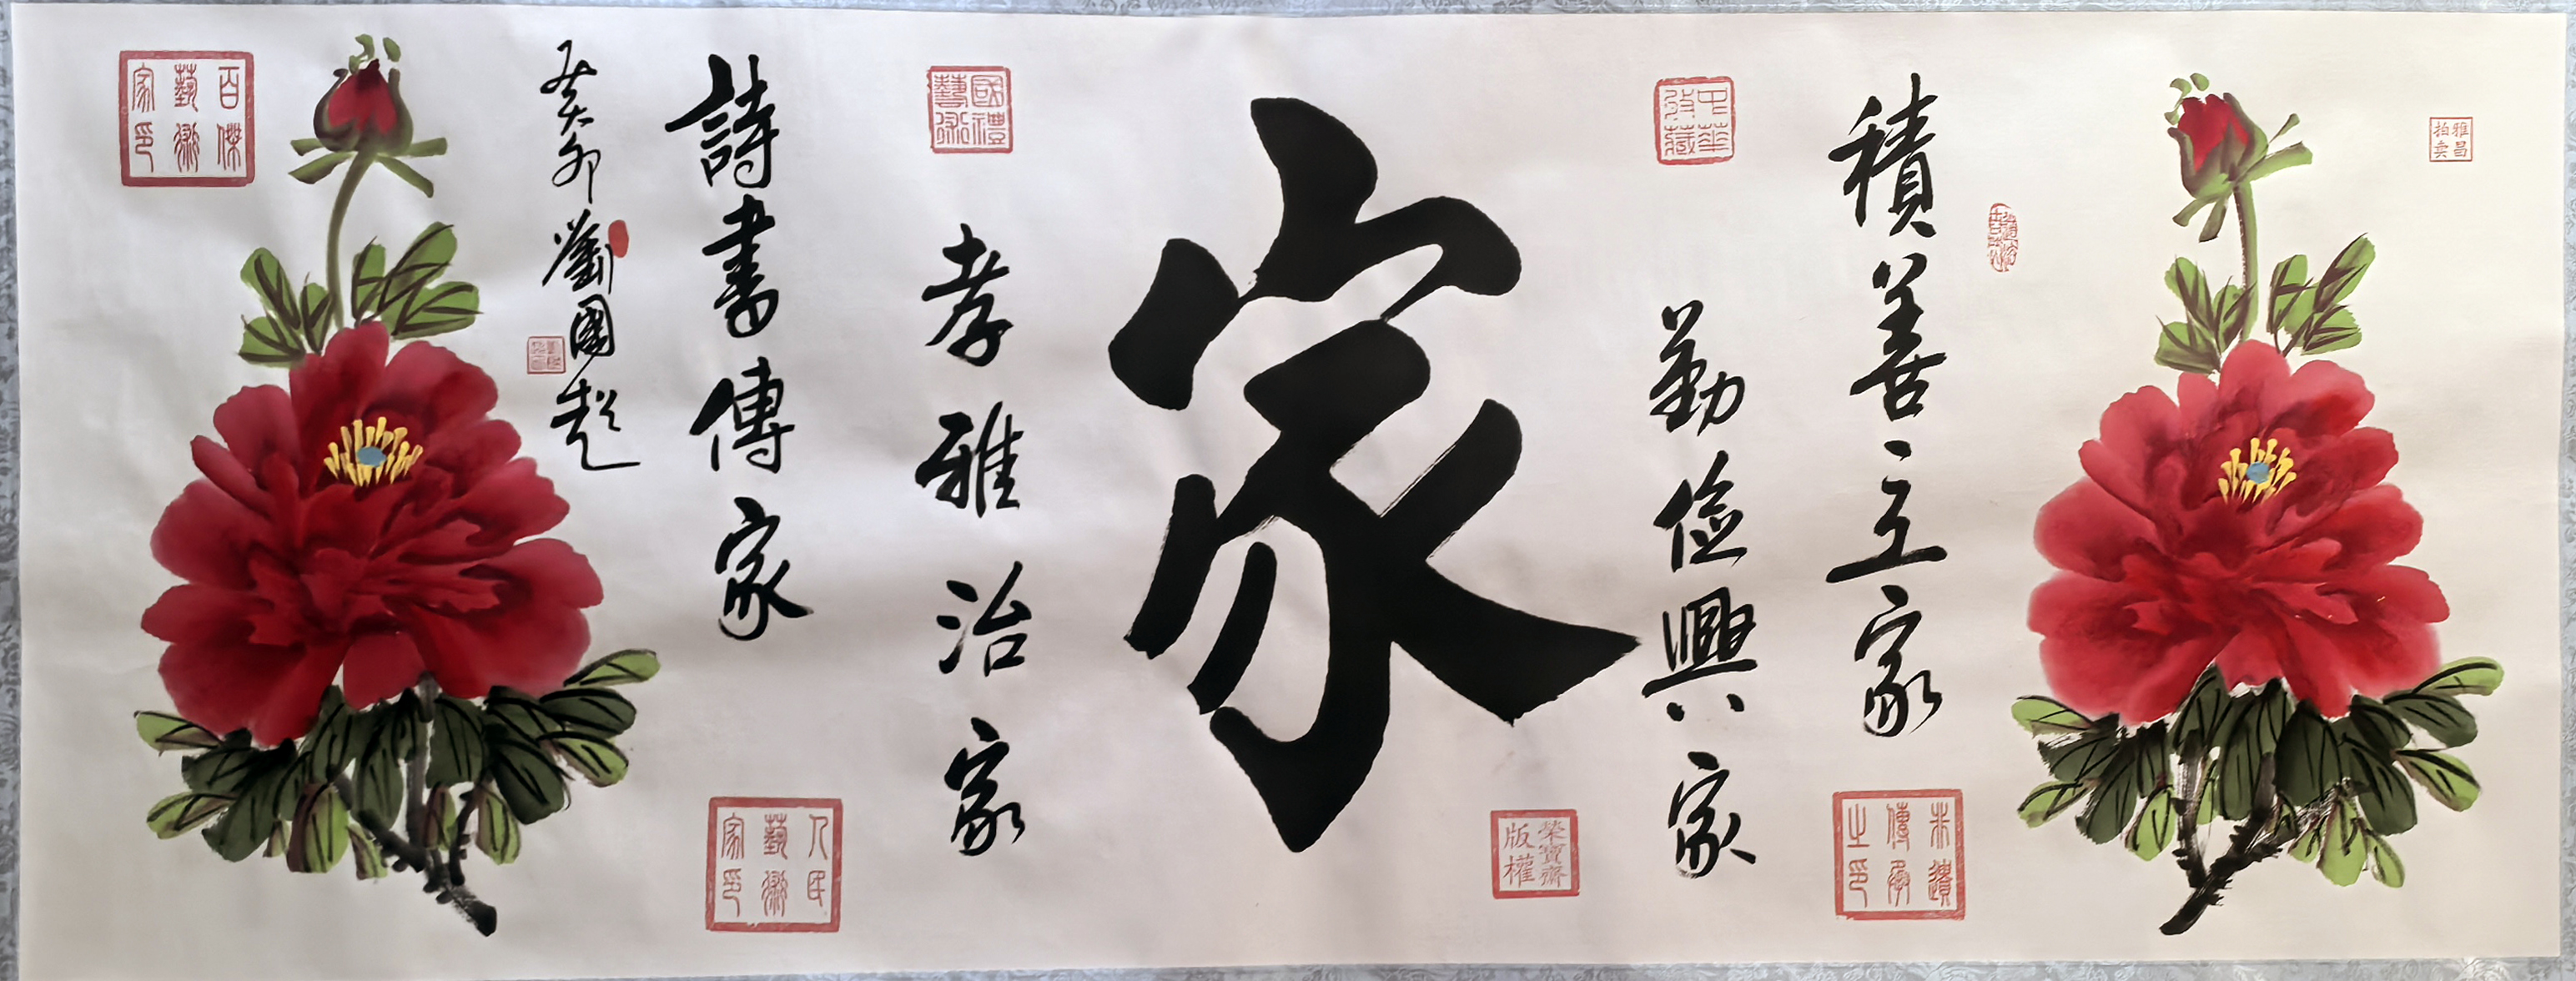 雅昌拍卖
積善立家
未遺傳承之印
中華收藏
勤儉興家
榮寶齋版權
家
國禮藝術
孝雅治家
詩書傳家
人民藝術家印
癸卯劉國超
百傑藝術家印